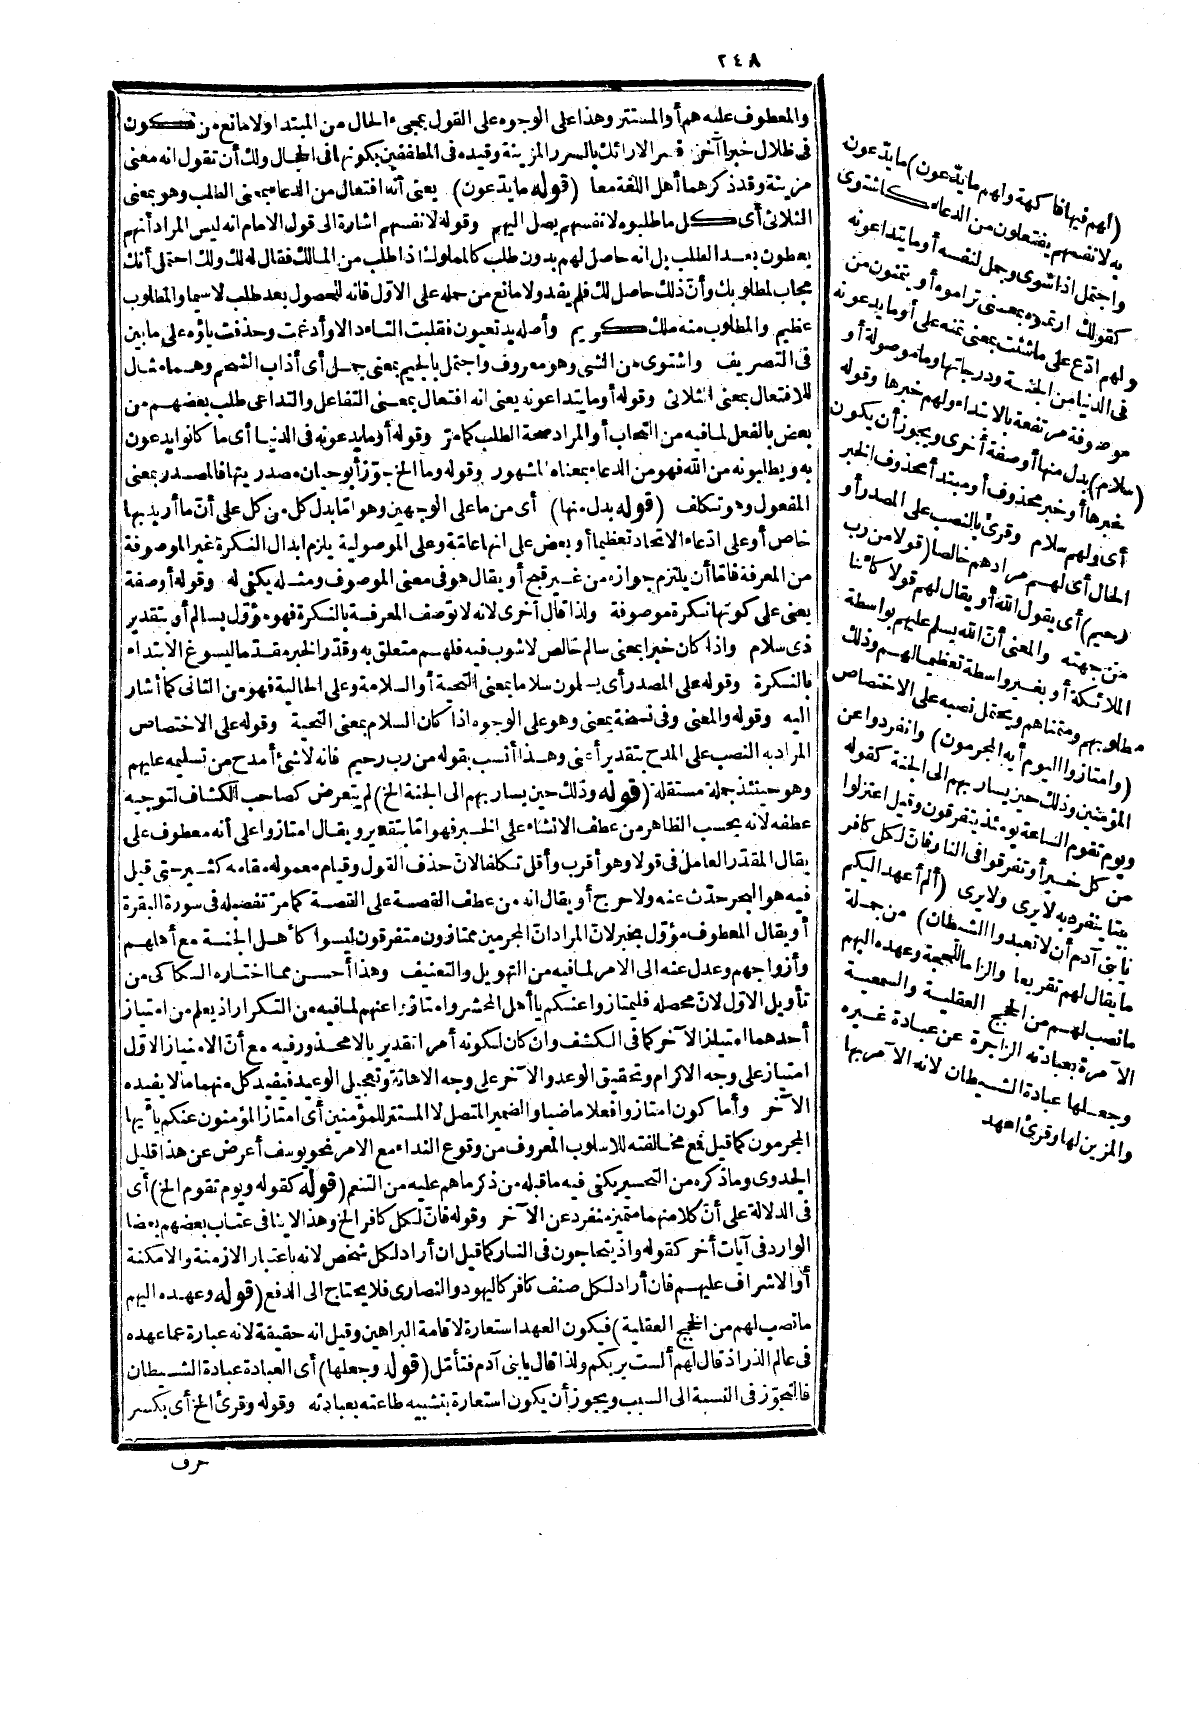 ٢٤٨
والمعطوف عليه هم أو المستتر وهذا على الوجوه على القول بمجيء الحال من المبتدا ولا مانع من تكون
فى ظلال خبرا آخر فسر الارائك بالسرر المزينة وقيده فى المطففين بكونها فى الحجال ولك أن تقول انه معنى
مزينة وقد ذكرهما أهل اللغة معا (قوله ما يدعون) يعنى أنه افتعال من الدعاء بمعنى الطلب وهو بمعنى
الثلاثى أى كل ما طلبوه لانفسهم يصل اليهم وقوله لانفسهم اشارة الى قول الامام انه ليس المراد أنهم
يعطون بعد الطلب بل انه حاصل لهم بدون طلب كالمملوك اذا طلب من المالك فقال له لك ذلك احتمل أنك
مجاب لمطلوبك وأن ذلك حاصل لك فلم يفد ولا مانع من حمله على الاول فانه للحصول بعد طلب لا سيما والمطلوب
عظيم والمطلوب منه ملك كريم وأصله يدتعيون فقلبت التاء دالا وأدغمت وحذفت ياؤه على ما بين
فى التصريف واشتوى من الشى وهو معروف واجتمل بالجيم بمعنى جمل أى أذاب الشحم وهما مثال
للافتعال بمعنى الثلاثى وقوله أو ما يتداعونه يعنى انه افتعال بمعنى التفاعل والتداعى طلب بعضهم من
بعض بالفعل لما فيه من التحاب أو المراد صحة الطلب كما مر وقوله أو ما يدعونه فى الدنيا أى ما كانوا يدعون
به ويطلبونه من الله فهو من الدعاء بمعناه المشهور وقوله وما الخ جوز أبو حيان مصدريتها فالمصدر بمعنى
المفعول وهو تكلف (قوله بدل منها) أى من ما على الوجهين وهو اما بدل كل من كل على أن ما أريد بها
خاص أو على ادعاء الاتحاد تعظيما أو بعض على انها عامة وعلى الموصولية يلزم ابدال النكرة غير الموصوفة
من المعرفة فاما أن يلتزم جوازه من غير قبح أو يقال هو فى معنى الموصوف ومثله يكفى له وقوله أو صفة
يعنى على كونها نكرة موصوفة ولذا قال أخرى لانه لا توصف المعرفة بالنكرة فهو مؤول بسالم أو بتقدير
ذى سلام واذا كان خبرا بمعنى سالم خالص لا شوب فيه فلهم متعلق به وقدر الخبر مقدما ليسوغ الابتداء
بالنكرة وقوله على المصدر أى يسلمون سلاما بمعنى التحية أو السلامة وعلى الحالية فهو من الثانى كما أشار
اليه وقوله والمعنى وفى نسخة بمعنى وهو على الوجوه اذا كان السلام بمعنى التحية وقوله على الاختصاص
المراد به النصب على المدح بتقدير أعنى وهذا أنسب بقوله من رب رحيم فانه لا شئ أمدح من تسليمه عليهم
وهو حينئذ جملة مستقلة (قوله وذلك حين يسار بهم الى الجنة الخ) لم يتعرض كصاحب الكشاف لتوجيه
عطفه لانه بحسب الظاهر من عطف الانشاء على الخبر فهو اما بتقدير ويقال امتازوا على أنه معطوف على
يقال المقدر العامل فى قولا وهو أقرب وأقل تكلفا لان حذف القول وقيام معموله مقامه كثير حتى قيل
فيه هو البحر حدث عنه ولا حرج أو يقال انه من عطف القصة على القصة كما مر تفصيله فى سورة البقرة
أو يقال المعطوف مؤول بخبر لان المراد ان المجرمين ممتازون متفرقون ليسوا كأهل الجنة مع أهلهم
وأزواجهم وعدل عنه الى الامر لما فيه من التهويل والتعنيف وهذا أحسن مما اختاره السكاكى من
تأويل الاول لان محصله فليمتازوا عنكم يا أهل المحشر وامتازوا عنهم لما فيه من التكرار اذ يعلم من امتياز
أحدهما امتياز الآخر كما فى الكشف وان كان لكونه أمرا تقديريا لا محذور فيه مع أن الامتياز الاول
امتياز على وجه الاكرام وتحقيق الوعد والآخر على وجه الاهانة وتعجيل الوعيد فيفيد كل منهما ما لا يفيده
الآخر وأما كون امتازوا فعلا ماضيا والضمير المتصل لا المستتر للمؤمنين أى امتاز المؤمنون عنكم يا أيها
المجرمون كما قيل فمع مخالفته للاسلوب المعروف من وقوع النداء مع الامر نحو يوسف أعرض عن هذا قليل
الجدوى وما ذكره من التحسير يكفى فيه ما قبله من ذكر ما هم عليه من التنعم (قوله كقوله ويوم تقوم الخ) أى
فى الدلالة على أن كلا منهما متميز منفرد عن الآخر وقوله فان لكل كافر الخ وهذا لا ينافى عتاب بعضهم بعضا
الوارد فى آيات أخر كقوله واذ يتحاجون فى النار كما قيل ان أراد لكل شخص لانه باعتبار الازمنة والامكنة
أو الاشراف عليهم فان أراد لكل صنف كافر كاليهود والنصارى فلا يحتاج الى الدفع (قوله وعهده اليهم
ما نصب لهم من الحجج العقلية) فيكون العهد استعارة لاقامة البراهين وقيل انه حقيقة لانه عبارة عما عهده
فى عالم الذر اذ قال لهم ألست بربكم ولذا قال يا بنى آدم فتأمل (قوله وجعلها) أى العبادة عبادة الشيطان
فالتجوز فى النسبة الى السبب ويجوز أن يكون استعارة بتشبيه طاعته بعبادته وقوله وقرئ الخ أى بكسر
حرف
(لهم فيها فاكهة ولهم ما يدعون) ما يدعون
به لانفسهم يفتعلون من الدعاء كاشتوى
واجتمل اذا شوى وجمل لنفسه أو ما يتداعونه
كقولك ارتموه بمعنى تراموه أو يتمنون من
قولهم ادع على ما شئت بمعنى تمنه على أو ما يدعونه
فى الدنيا من الجنة ودرجاتها وما موصولة أو
موصوفة مرتفعة بالابتداء ولهم خبرها وقوله
(سلام) بدل منها أو صفة أخرى ويجوز أن يكون
خبرها أو خبر محذوف أو مبتدأ محذوف الخبر
أى ولهم سلام وقرئ بالنصب على المصدر أو
الحال أى لهم مرادهم خالصا (قولا من رب
رحيم) أى يقول الله أو يقال لهم قولا كائنا
من جهته والمعنى أن الله يسلم عليهم بواسطة
الملائكة أو بغير واسطة تعظيما لهم وذلك
مطلوبهم ومتمناهم ويحتمل نصبه على الاختصاص
(وامتازوا اليوم أيها المجرمون) وانفردوا عن
المؤمنين وذلك حين يسار بهم الى الجنة كقوله
ويوم تقوم الساعة يومئذ يتفرقون وقيل اعتزلوا
من كل خير أو تفرقوا فى النار فان لكل كافر
بيتا ينفرد به لا يرى ولا يرى (ألم أعهد اليكم
يا بنى آدم أن لا تعبدوا الشيطان) من جملة
ما يقال لهم تقريعا والزاما للحجة وعهده اليهم
ما نصب لهم من الحجج العقلية والسمعية
الآمرة بعبادته الزاجرة عن عبادة غيره
وجعلها عبادة الشيطان لانه الآمر بها
والمزين لها وقرئ اعهد